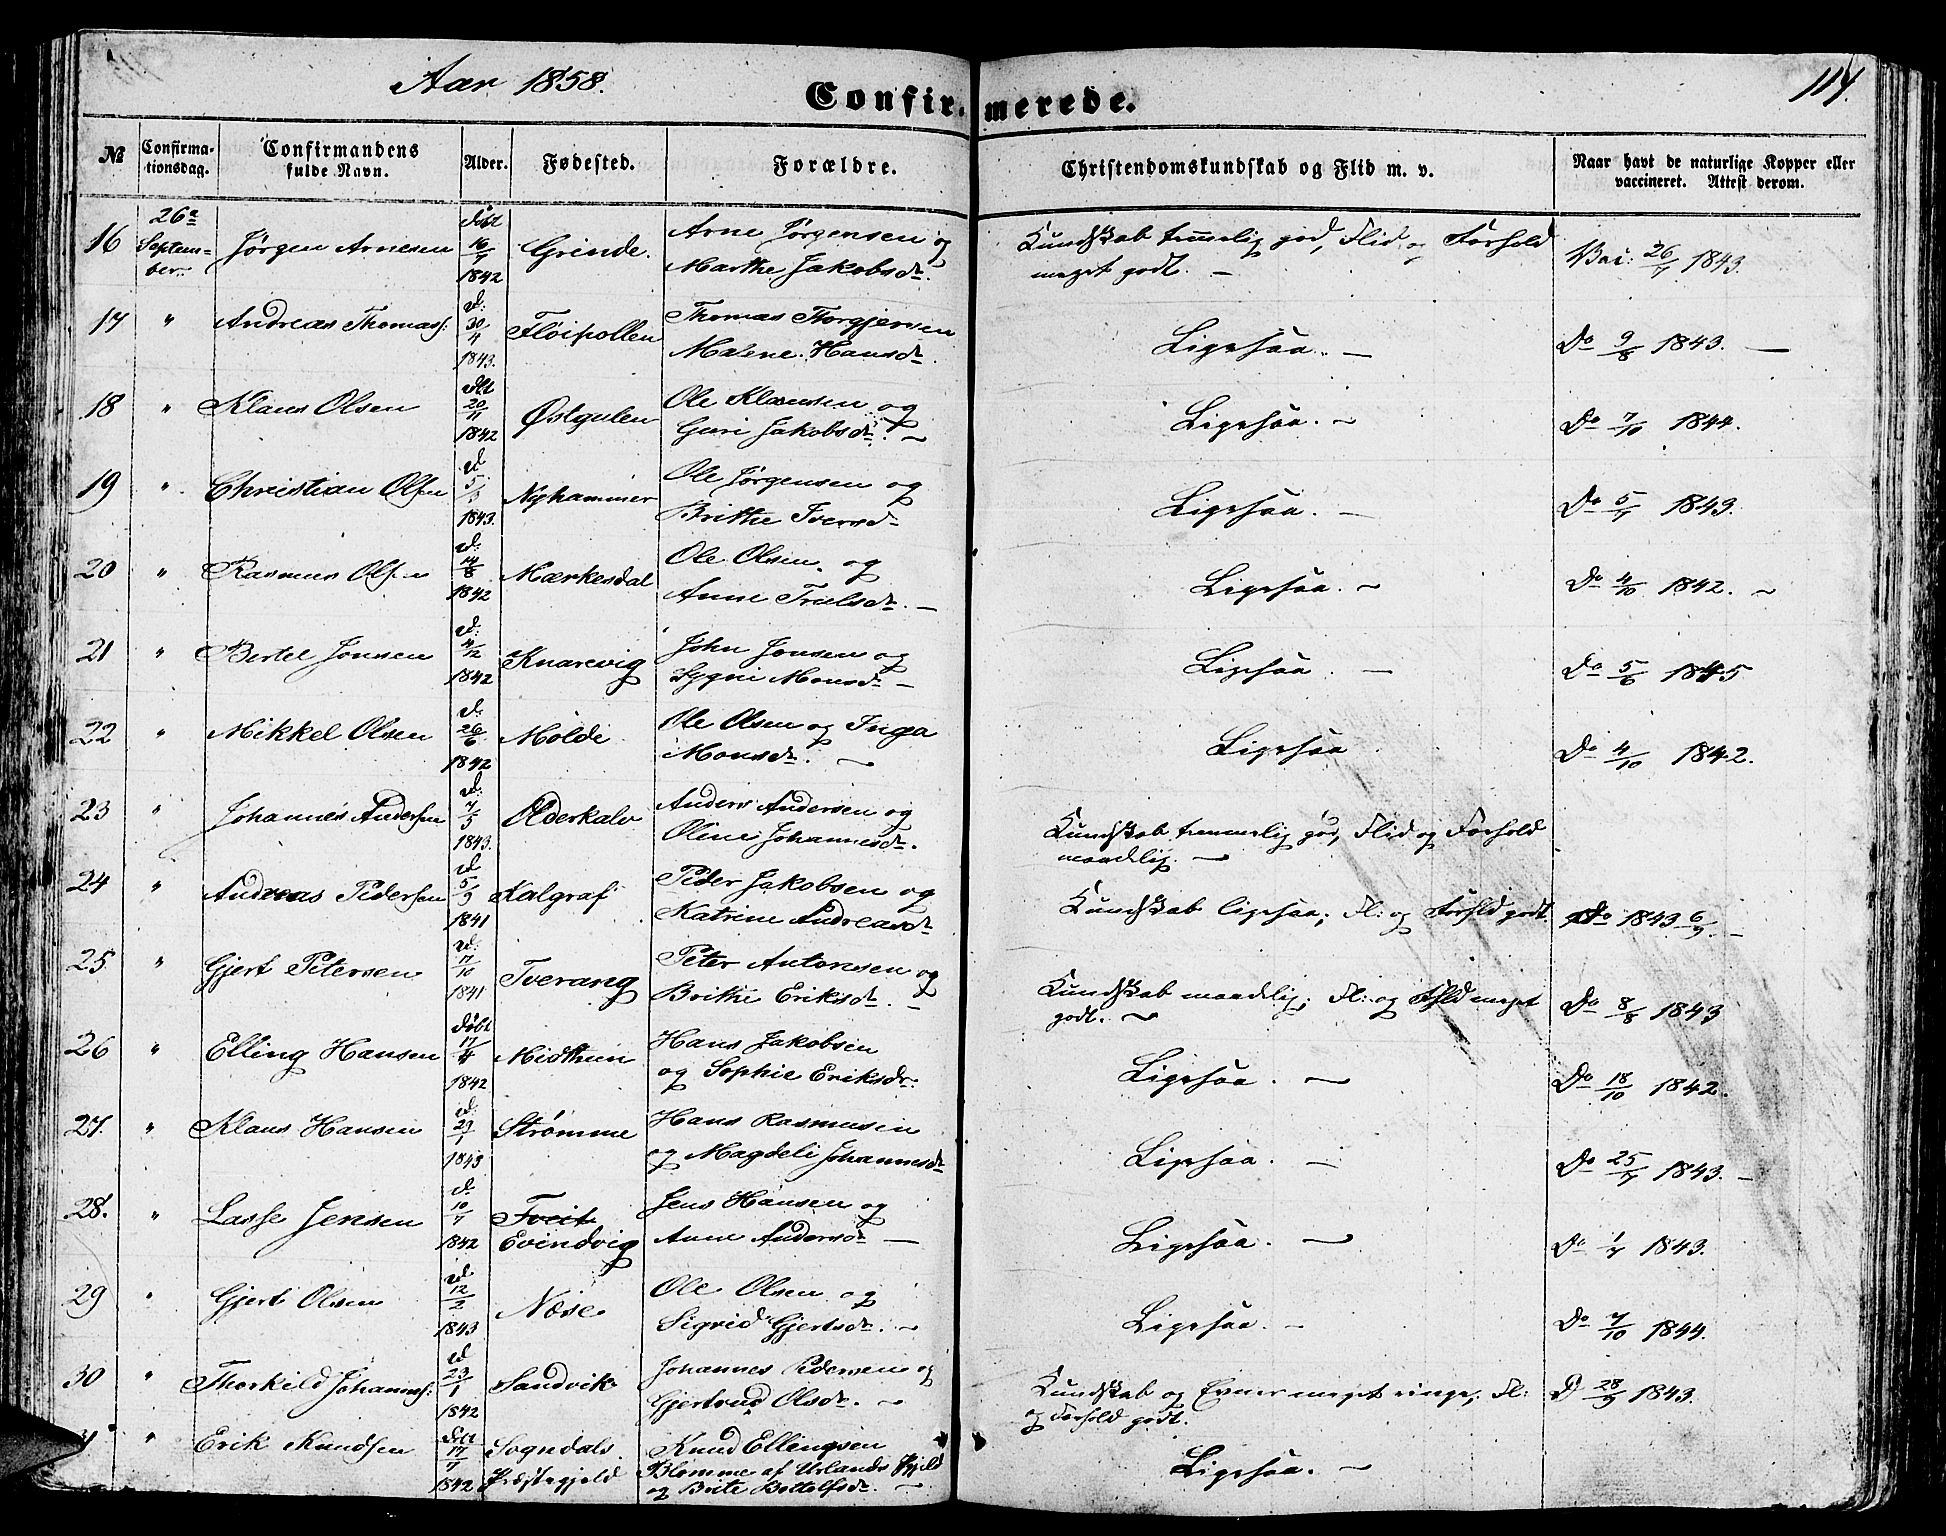 Aar 1858.
114.
Confirmerede.
№
Confirmationsdag.
Confirmandens fulde Navn.
Alder.
Fødested.
Forældre.
Christendomskundskab og Flid m. v.
Naar havt de naturlige Kopper eller vaccineret. Attest derom.
16 26de September Jørgen Arnesen døbt 16/7 1842 Grinde. Arne Jørgensen og Marthe Jakobsdr. Kundskab temmelig god, Flid og Forhold meget godt. — Vac: 26/7 1843.
17 " Andreas Thomass: d: 30/4 1843. Fløipollen Thomas Torgjersen Malene Hansdr. Ligesaa. — Do 9/8 1843. —
18 " Klaus Olsen døbt 20/11 1842 Østgulen Ole Klausen og Guri Jakobsdr. — Ligesaa. — Do 7/10 1844.
19 " Christian Olsen d 5/3 1843. Nyhammer Ole Jørgensen og Brithe Iversdr Ligesaa. — Do 5/7 1843.
20 " Rasmus Olsen d: 14/8 1842 Mærkesdal Ole Olsen og Anne Trulsdr. — Ligesaa. — Do 4/10 1842. —
21 " Bertel Jonsen d: 4/12 1842 Knarevig John Jonsen og Sygni Monsdr — Ligesaa. — Do 5/6 1845
22 " Mikkel Olsen d: 26/6 1842 Molde Ole Olsen og Inga Monsdr. — Ligesaa Do 4/10 1842.
23 " Johannes Andersen d: 7/5 1843. Olderkalv Anders Andersen og Oline Johannesdr. Kundskab temmelig god, Flid og Forhold maadelig. —
24 " Andreas Pedersen d 5/9 1841 Kalgraf Peder Jakobsen og Katrine Andreasdr Kundskab ligesaa; Fl: og Forhld godt. Do 1843 6/9. —
25 " Gjert Petersen d: 17/10 1841 Tverang Peter Antonesen og Brithe Eriksdr. — Kundskab maadelig; Fl: og Fhld meget godt. — Do 8/8 1843
26 " Elling Hansen døbt 17/4 1842 Midthun Hans Jakobsen og Sophie Eriksdr. Ligesaa. — Do 18/10 1842.
27. " Klaus Hansen d: 29/1 1843 Strømme Hans Rasmusen og Magdeli Johannesdr Ligesaa. — Do 25/7 1843. —
28. " Lasse Jensen d: 10/7 1842 Tveit Evindvig Jens Hansen og Anne Andersdr — Ligesaa. — Do 1/7 1843.
29 " Gjert Olsen d 12/2 1843 Nese Ole Olsen og Sigrid Gjertsdr. — Ligesaa. — Do 7/10 1844.
30 " Thorkild Johanness: d 23/1 1842 Sandvik Johannes Pedersen og Gjertrud Olsdr. — Kundskab og Evner meget ringe; Fl: og Forhold godt. D 28/9 1843.
" Erik Knudsen døbt 17/7 1842 Sogndals Præstegjeld Knud Ellingsen Blomme af Urlands Pgjeld og Brite Bottolfsdr. — Ligesaa. —